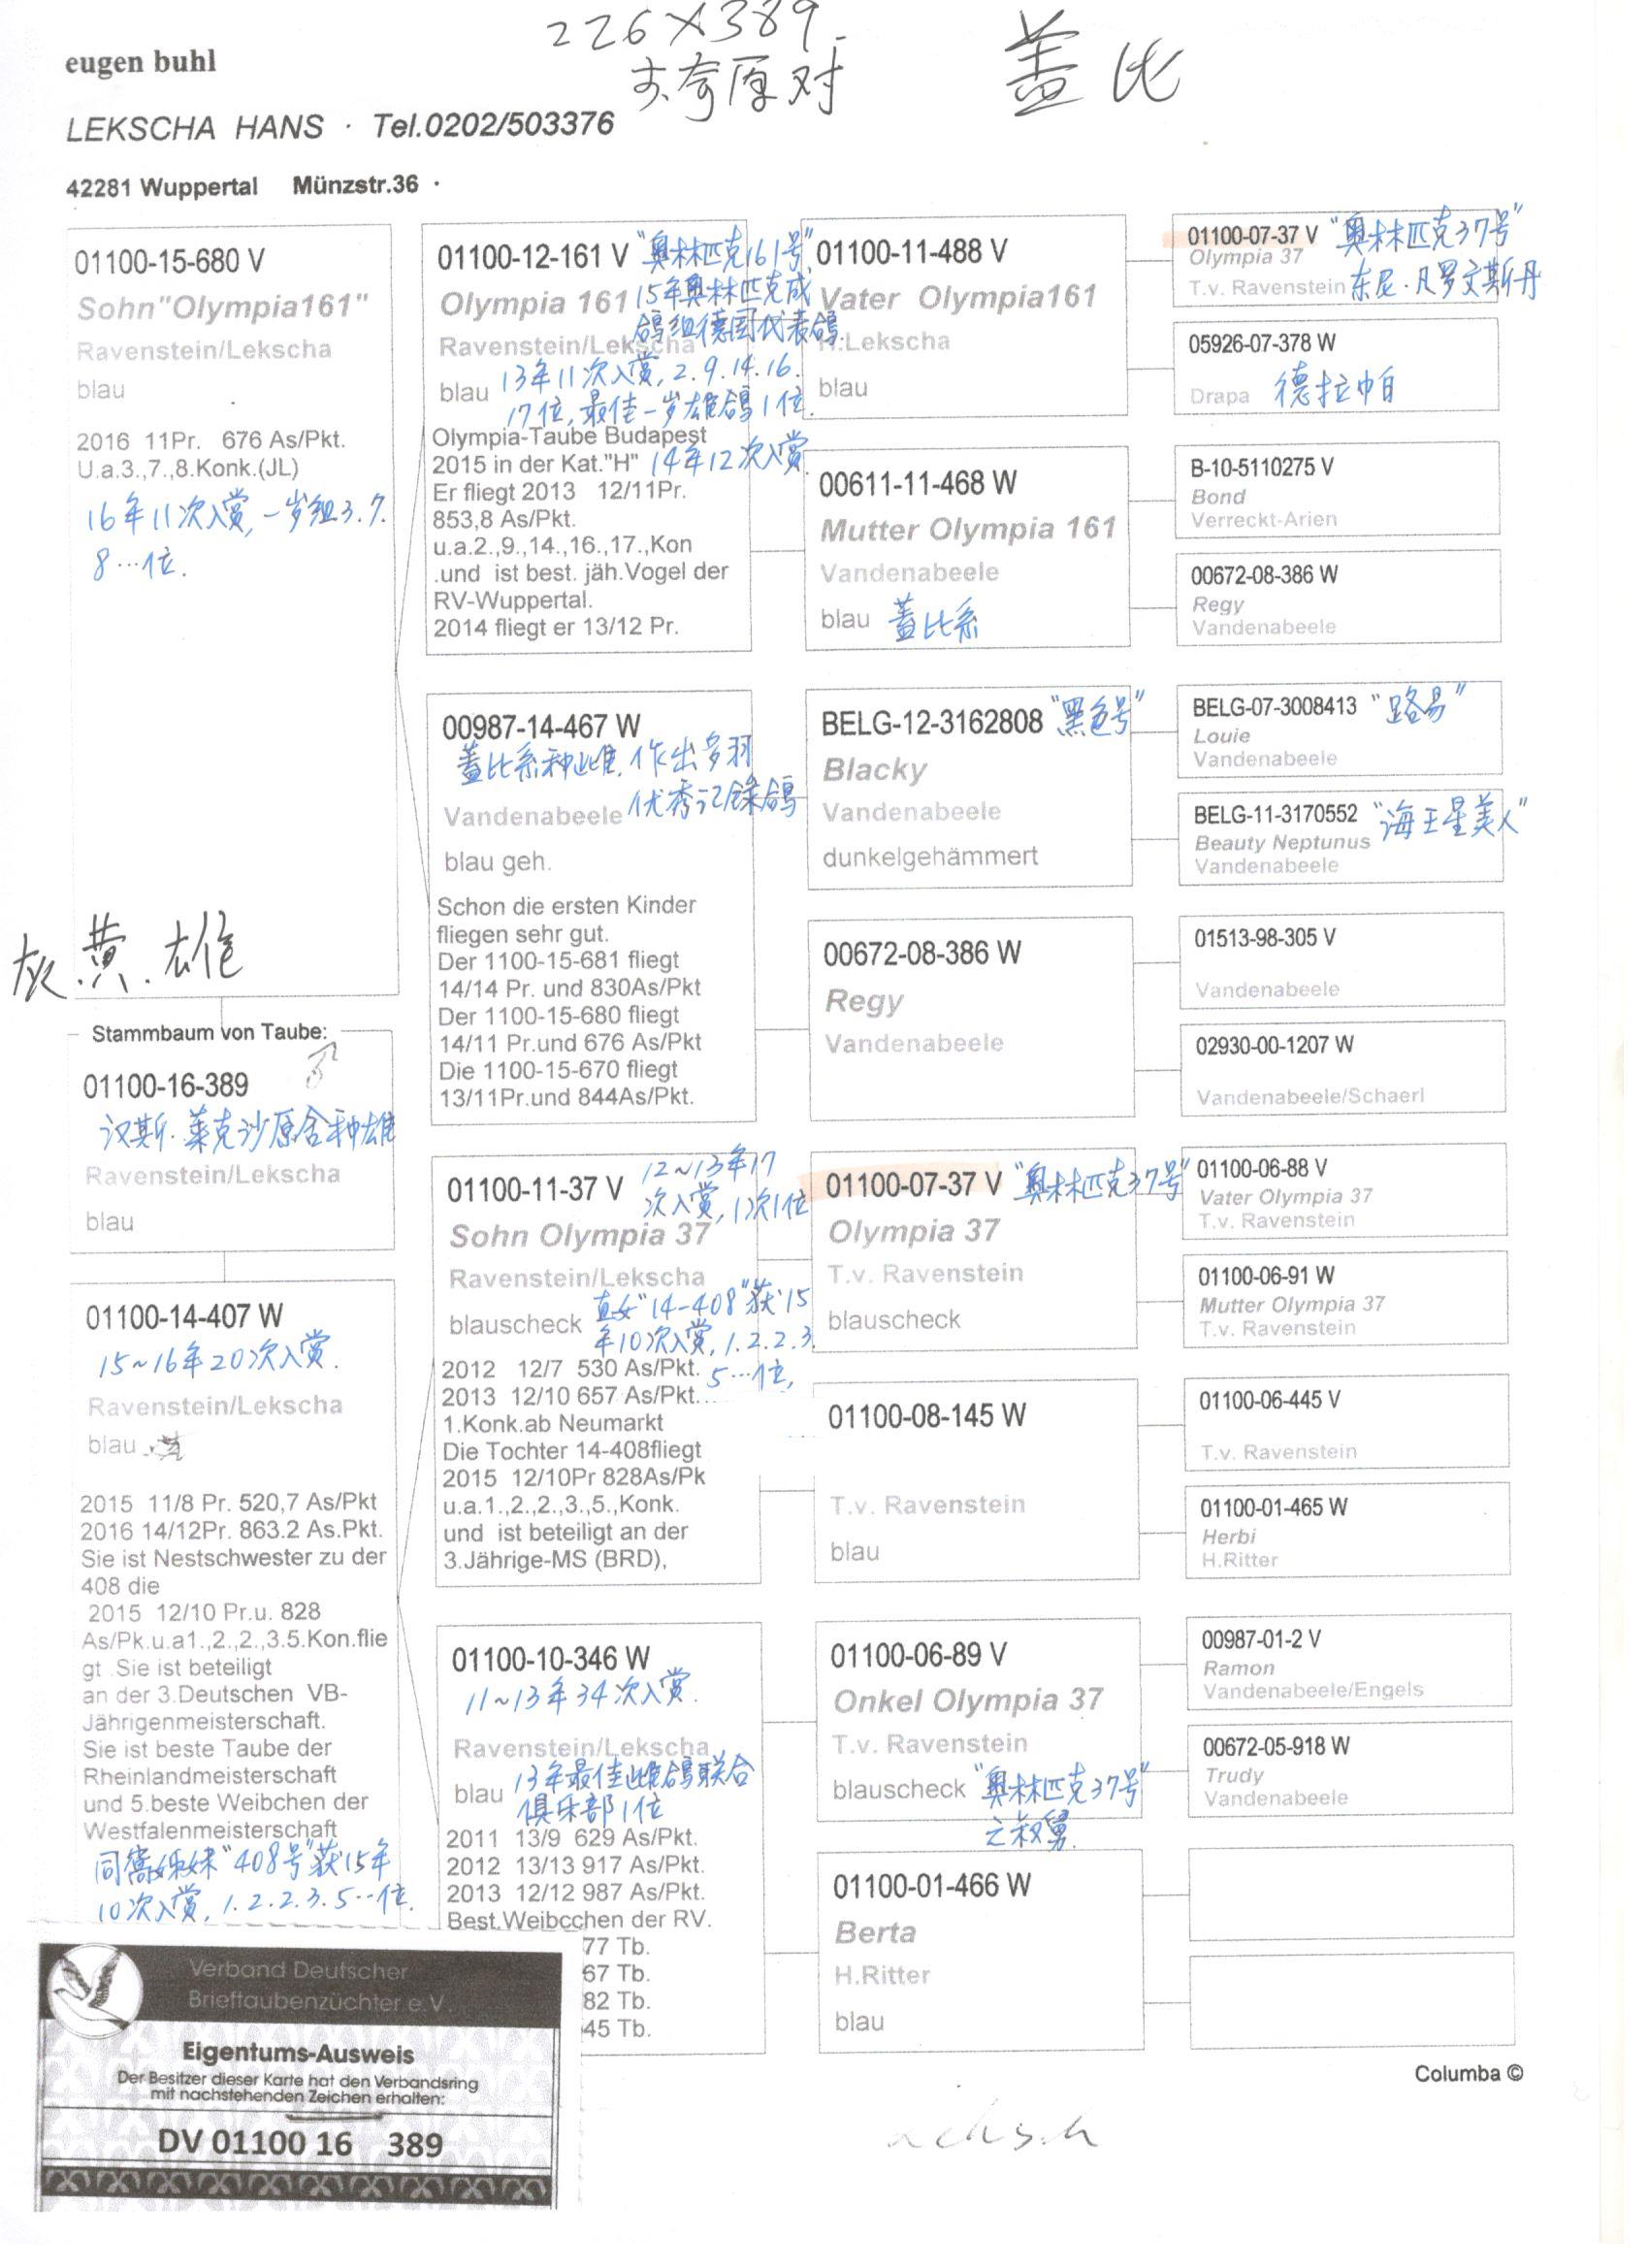 eugen buhl
226×389.
LEKSCHA HANS · Tel.0202/503376
原对
盖比
42281 Wuppertal Münzstr.36 ·
01100-15-680 V
Sohn"Olympia161"
Ravenstein/Lekscha
blau
2016 11Pr. 676 As/Pkt.
U.a.3.,7.,8.Konk.(JL)
16年11次入赏,一岁组3.7.
8…位.
灰.黄.雄
Stammbaum von Taube:
01100-16-389
汉斯.莱克沙原舍种雄
Ravenstein/Lekscha
blau
01100-14-407 W
15~16年20次入赏.
Ravenstein/Lekscha
blau
2015 11/8 Pr. 520,7 As/Pkt
2016 14/12Pr. 863.2 As.Pkt.
Sie ist Nestschwester zu der
408 die
2015 12/10 Pr.u. 828
As/Pk.u.a1.,2.,2.,3.5.Kon.flie
gt .Sie ist beteiligt
an der 3.Deutschen VB-
Jährigenmeisterschaft.
Sie ist beste Taube der
Rheinlandmeisterschaft
und 5.beste Weibchen der
Westfalenmeisterschaft
同窝姐妹"408号"获15年
10次入赏,1.2.2.3.5…位.
01100-12-161 V "奥林匹克161号"
Olympia 161 15年奥林匹克成
鸽组德国代表鸽
Ravenstein/Lekscha
blau 13年11次入赏,2.9.14.16.
17位,最佳一岁雄鸽1位.
Olympia-Taube Budapest
2015 in der Kat."H" 14年12次入赏
Er fliegt 2013 12/11Pr.
853,8 As/Pkt.
u.a.2.,9.,14.,16.,17.,Kon
.und ist best. jäh.Vogel der
RV-Wuppertal.
2014 fliegt er 13/12 Pr.
00987-14-467 W
盖比系种雌.作出多羽
优秀记录鸽
Vandenabeele
blau geh.
Schon die ersten Kinder
fliegen sehr gut.
Der 1100-15-681 fliegt
14/14 Pr. und 830As/Pkt
Der 1100-15-680 fliegt
14/11 Pr.und 676 As/Pkt
Die 1100-15-670 fliegt
13/11Pr.und 844As/Pkt.
01100-11-37 V 12~13年17
次入赏,1次1位
Sohn Olympia 37
Ravenstein/Lekscha
直女"14-408"获15
blauscheck 年10次入赏,1.2.2.3.
2012 12/7 530 As/Pkt. 5…位,
2013 12/10 657 As/Pkt...
1.Konk.ab Neumarkt
Die Tochter 14-408fliegt
2015 12/10Pr 828As/Pk
u.a.1.,2.,2.,3.,5.,Konk.
und ist beteiligt an der
3.Jährige-MS (BRD),
01100-10-346 W
11~13年34次入赏.
Ravenstein/Lekscha
blau 13年最佳雌鸽联合
俱乐部1位
2011 13/9 629 As/Pkt.
2012 13/13 917 As/Pkt.
2013 12/12 987 As/Pkt.
Best.Weibcchen der RV.
77 Tb.
67 Tb.
82 Tb.
45 Tb.
01100-11-488 V
Vater Olympia161
H.Lekscha
blau
00611-11-468 W
Mutter Olympia 161
Vandenabeele
blau 盖比系
BELG-12-3162808 "黑色号"
Blacky
Vandenabeele
dunkelgehämmert
00672-08-386 W
Regy
Vandenabeele
01100-07-37 V "奥林匹克37号"
Olympia 37
T.v. Ravenstein
blauscheck
01100-08-145 W
T.v. Ravenstein
blau
01100-06-89 V
Onkel Olympia 37
T.v. Ravenstein
blauscheck "奥林匹克37号"
之叔舅.
01100-01-466 W
Berta
H.Ritter
blau
01100-07-37 V "奥林匹克37号"
Olympia 37
T.v. Ravenstein 东尼·凡罗文斯丹
05926-07-378 W
Drapa 德拉帕
B-10-5110275 V
Bond
Verreckt-Arien
00672-08-386 W
Regy
Vandenabeele
BELG-07-3008413 "路易"
Louie
Vandenabeele
BELG-11-3170552 "海王星美人"
Beauty Neptunus
Vandenabeele
01513-98-305 V
Vandenabeele
02930-00-1207 W
Vandenabeele/Schaerl
01100-06-88 V
Vater Olympia 37
T.v. Ravenstein
01100-06-91 W
Mutter Olympia 37
T.v. Ravenstein
01100-06-445 V
T.v. Ravenstein
01100-01-465 W
Herbi
H.Ritter
00987-01-2 V
Ramon
Vandenabeele/Engels
00672-05-918 W
Trudy
Vandenabeele
Columba ©
Verband Deutscher
Brieftaubenzüchter e.V.
Eigentums-Ausweis
Der Besitzer dieser Karte hat den Verbandsring
mit nachstehenden Zeichen erhalten:
DV 01100 16 389